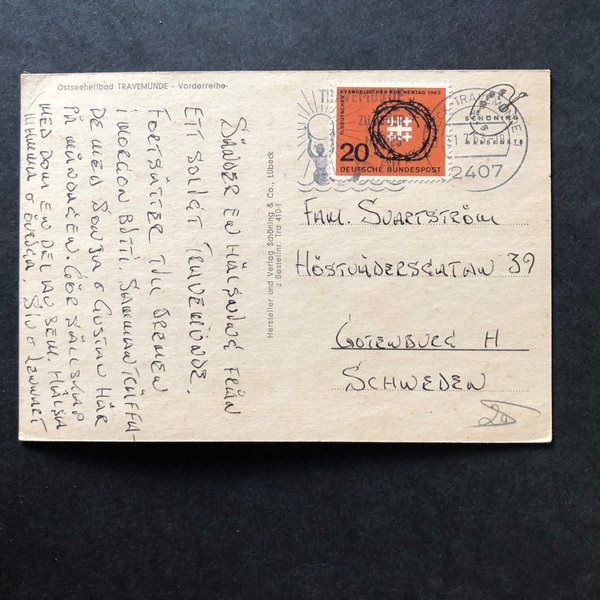 Ostseeheilbad TRAVEMÜNDE - Vorderreihe
SÄNDER EN HÄLSNING FRÅN
ETT SOLIGT TRAVEMÜNDE.
FORTSÄTTER TILL BREMEN
I MORGON BITTI. SAMMANTRÄFFA-
DE MED SONJA O GUSTAV HÄR
PÅ MÅNDAGEN. GÖR SÄLLSKAP
MED DOM EN DEL AV SEM. HÄLSA
MAMMA O ÖVRIGA. SIV O LENNART
Hersteller und Verlag Schöning & Co., Lübeck
z Bestellnr. Tra 410 t
11. DEUTSCHER EVANGELISCHER KIRCHENTAG 1963
20
DEUTSCHE BUNDESPOST
TRAVEMÜNDE
2407
SCHÖNING
FAM. SVARTSTRÖM
HÖSTVÄDERSGATAN 39
GOTENBURG H
SCHWEDEN